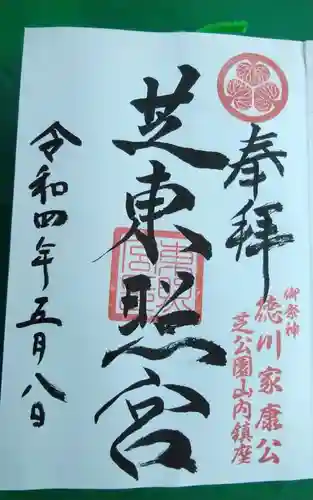 奉拝
御祭神
徳川家康公
芝公園山内鎮座
芝東照宮
令和四年五月八日